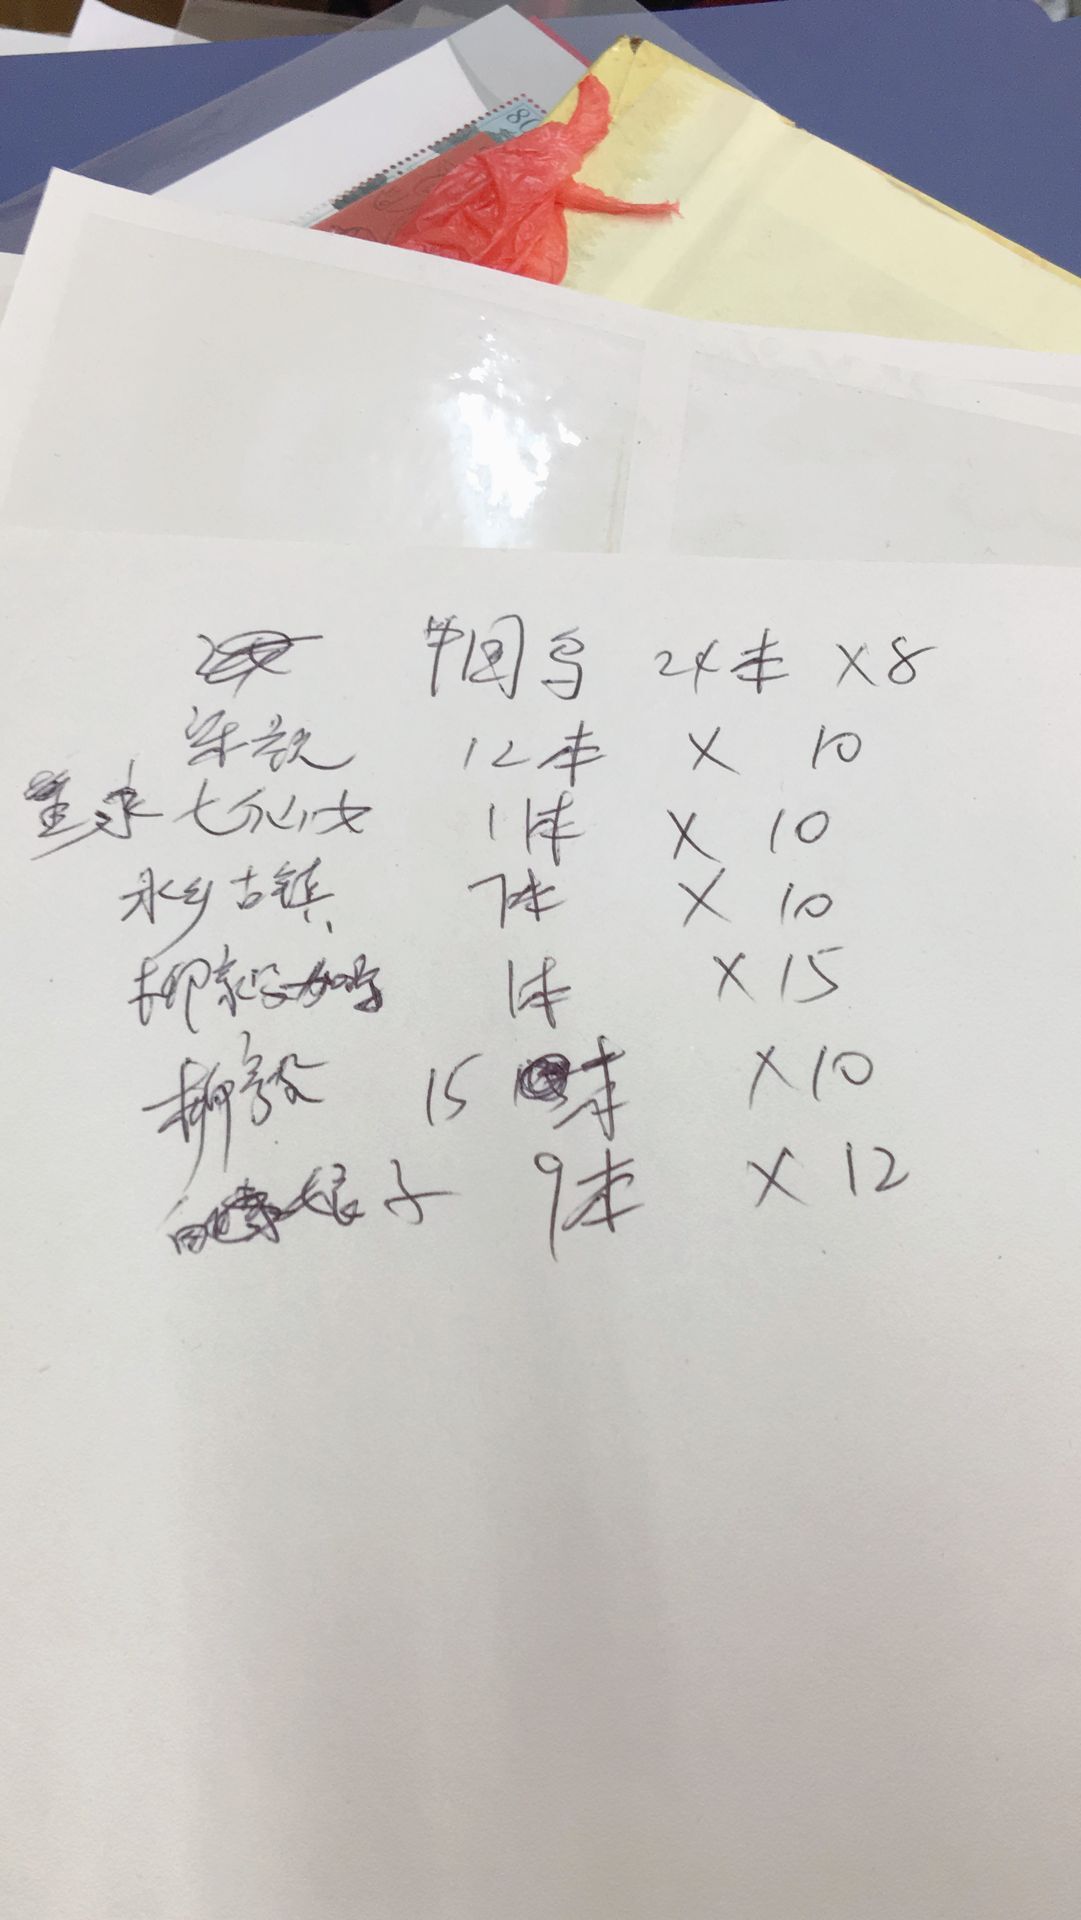 80
中国鸟 24本 ×8
梁祝 12本 × 10
董永 七仙女 1本 × 10
水乡古镇 7本 × 10
1本 ×15
柳毅 15 本 ×10
娘子 9本 × 12